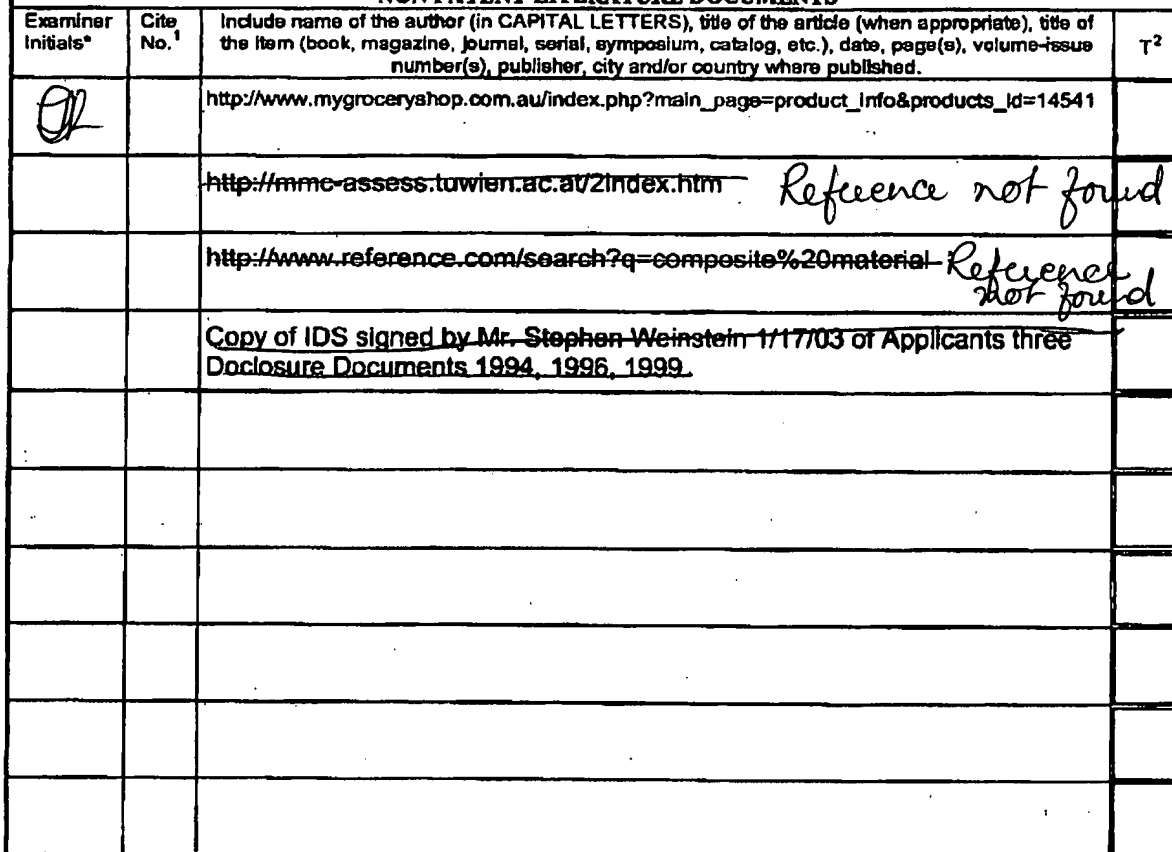 NON PATENT LITERATURE DOCUMENTS
Examiner Initials* Cite No.¹ Include name of the author (in CAPITAL LETTERS), title of the article (when appropriate), title of
the item (book, magazine, journal, serial, symposium, catalog, etc.), date, page(s), volume-issue
number(s), publisher, city and/or country where published. T²
http://www.mygroceryshop.com.au/index.php?main_page=product_info&products_id=14541
http://mmc-assess.tuwien.ac.at/2index.htm Reference not found
http://www.reference.com/search?q=composite%20material Reference
not found
Copy of IDS signed by Mr. Stephen Weinstein 1/17/03 of Applicants three
Doclosure Documents 1994, 1996, 1999.